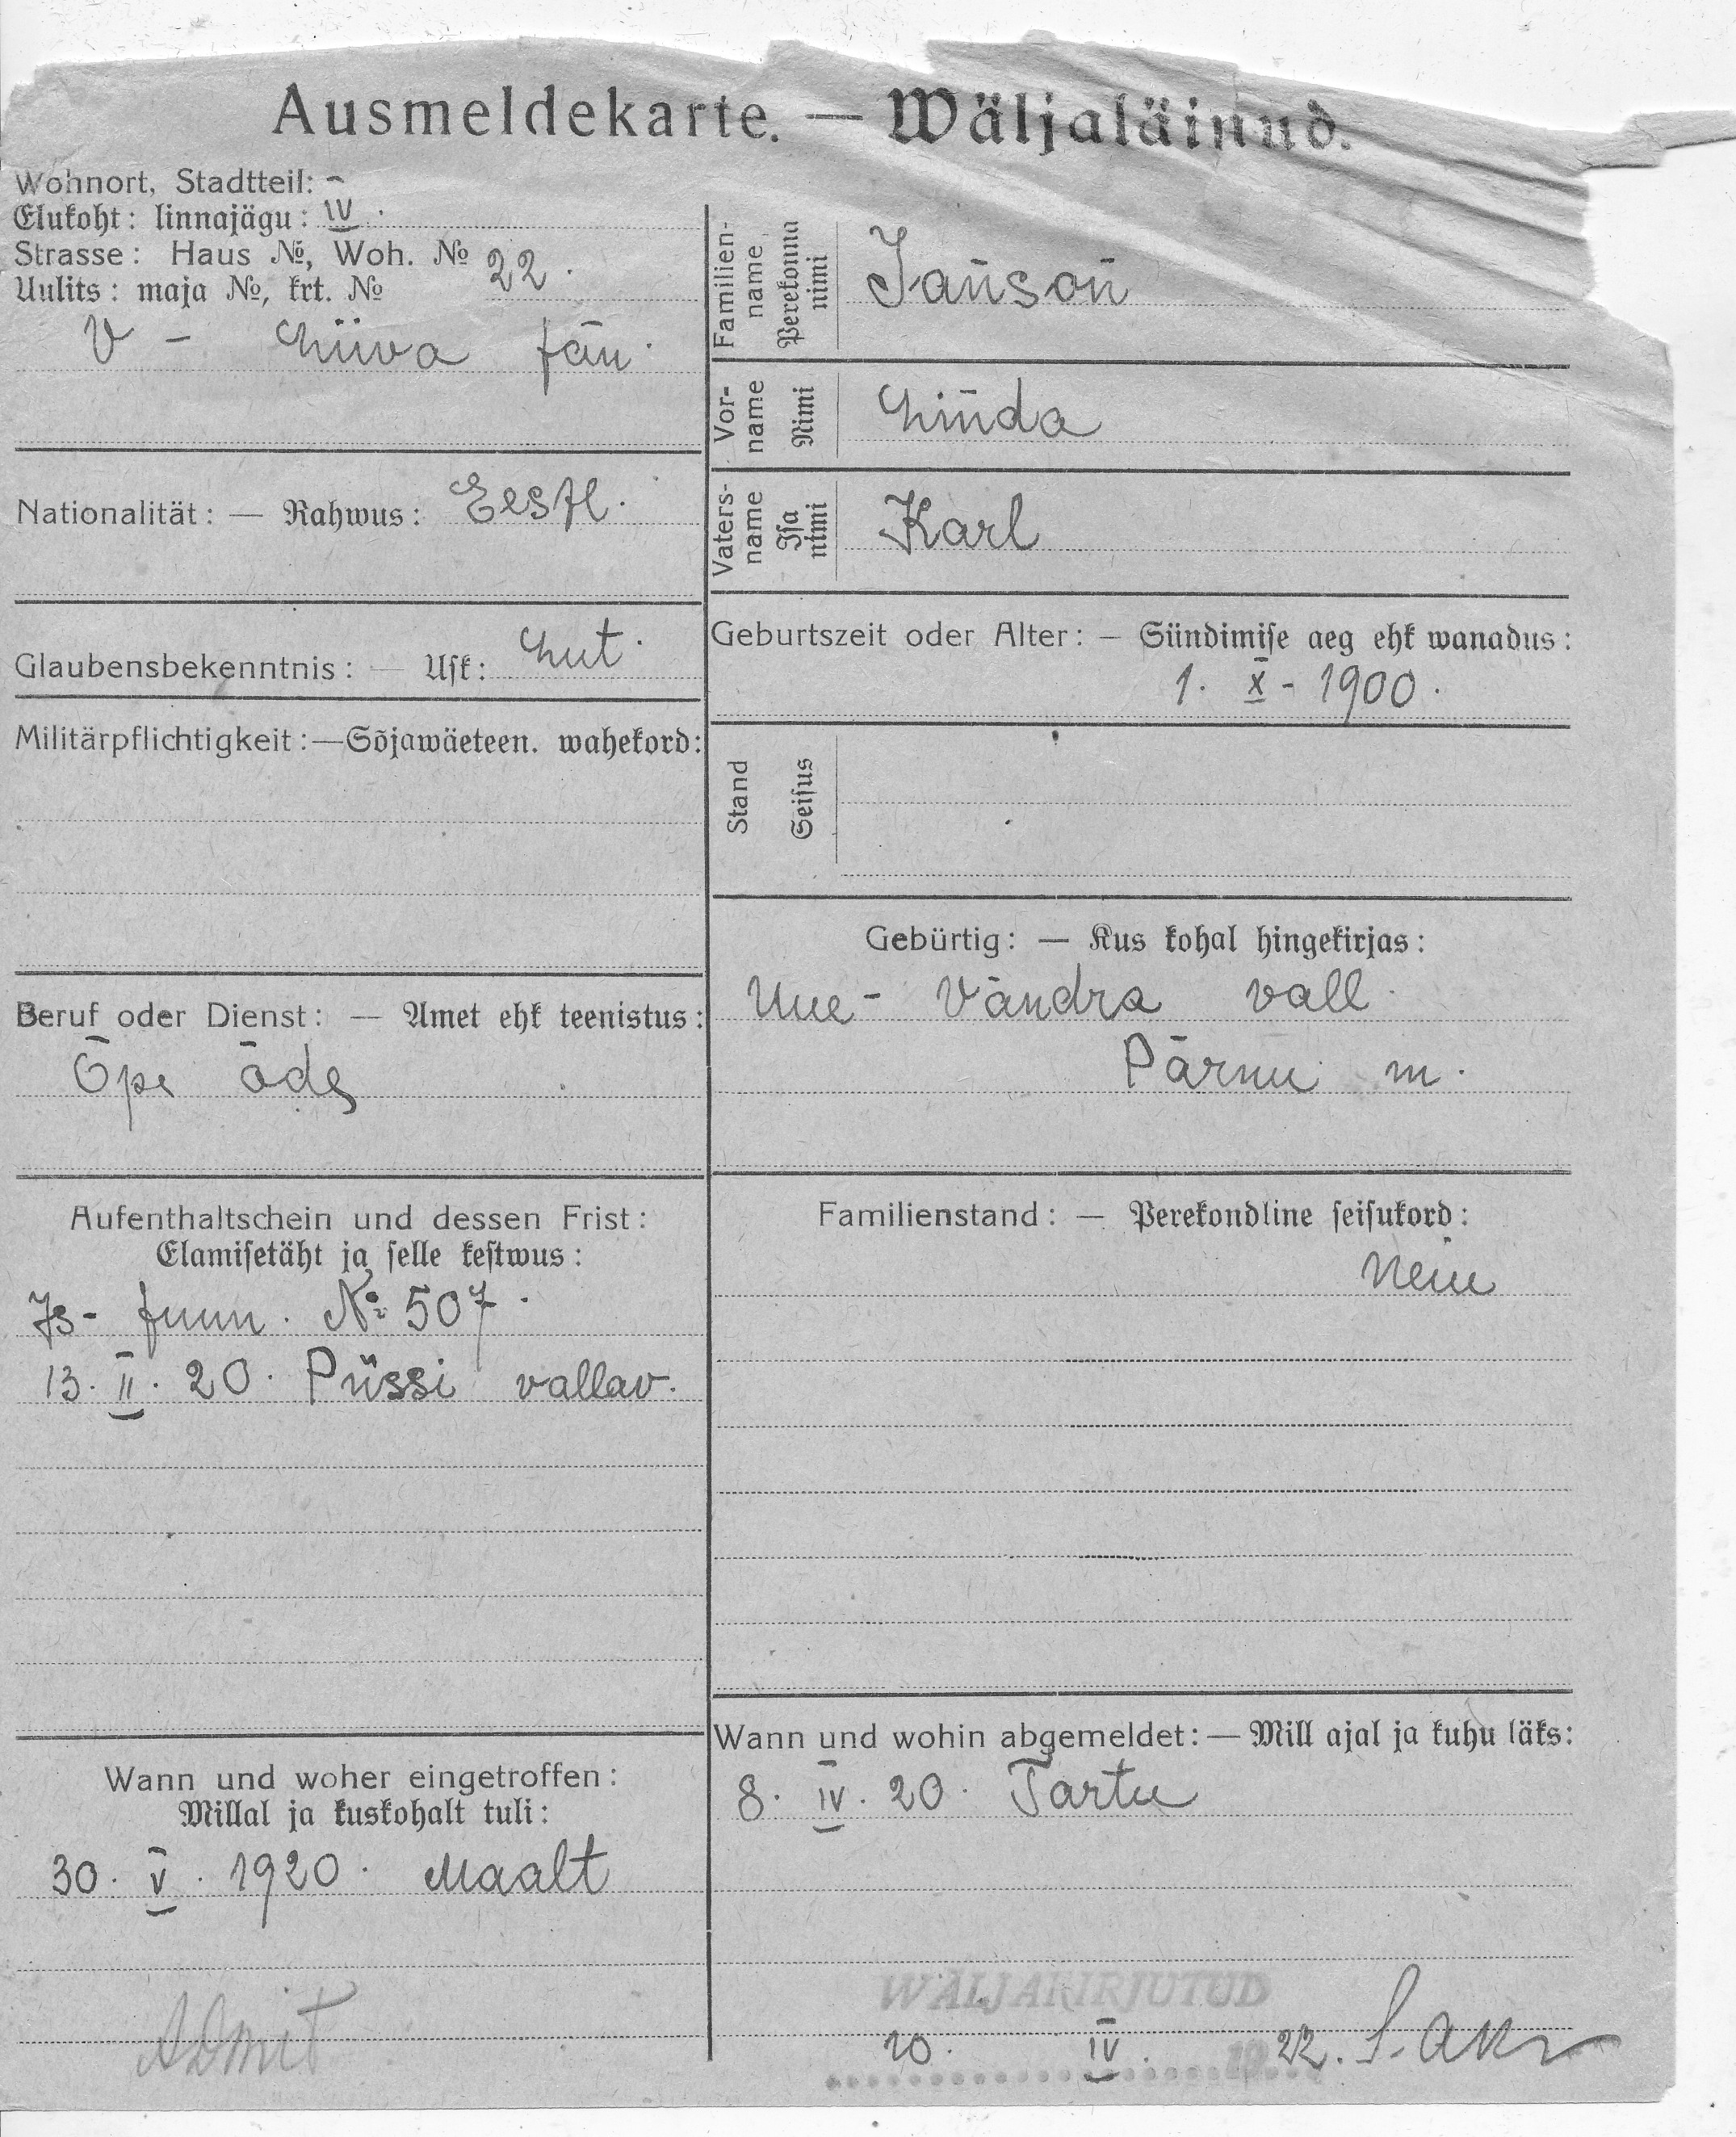 Ausmeldekarte. — Wäljaläinud.
Wohnort, Stadtteil: -
Elukoht: linnajägu: IV.
Strasse: Haus №, Woh. № 22.
Uulits: maja №, krt. №
V - Liiva tän.
Nationalität: — Rahwus: Eestl.
Glaubensbekenntnis: — Usk: Lut.
Militärpflichtigkeit: — Sõjawäeteen. wahekord:
Beruf oder Dienst: — Amet ehk teenistus:
Õpe õde
Aufenthaltschein und dessen Frist:
Elamisetäht ja selle kestwus:
Is- tunn. № 507.
13. II. 20. Püssi vallav.
Wann und woher eingetroffen:
Millal ja kuskohalt tuli:
30. V. 1920. Maalt
Familien-name Perekonna nimi Janson
Vor-name Nimi Linda
Vaters-name Isa nimi Karl
Geburtszeit oder Alter: — Sündimise aeg ehk wanadus:
1. X - 1900.
Stand Seisus
Gebürtig: — Kus kohal hingekirjas:
Uue- Vändra vall.
Pärnu m.
Familienstand: — Perekondline seisukord:
Neiu
Wann und wohin abgemeldet: — Mill ajal ja kuhu läks:
8. IV. 20. Tartu
WÄLJAKIRJUTUD
10. IV. 1922.